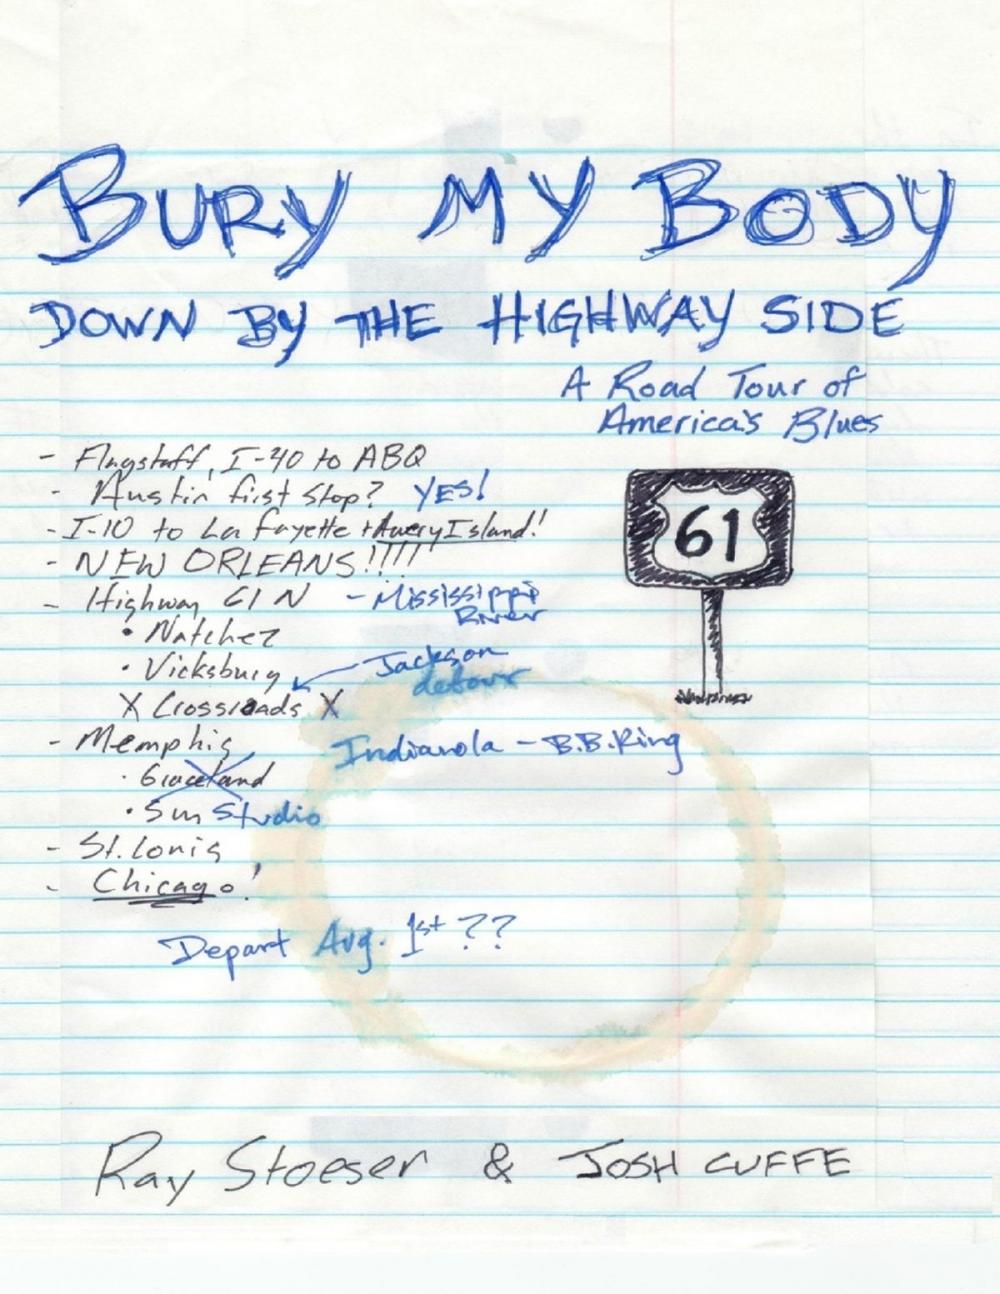 BURY MY BODY
DOWN BY THE HIGHWAY SIDE
A Road Tour of
America's Blues
- Flagstaff, I-40 to ABQ
- Austin first stop? YES!
- I-10 to La Fayette + Avery Island!
- NEW ORLEANS!!!!!
- Highway 61 N - Mississippi
River
• Natchez
• Vicksburg
Jackson
detour
X Crossroads X
- Memphis
Indianola - B.B. King
· Graceland
• Sun Studio
- St. Louis
- Chicago!
Depart Aug. 1st ??
61
Ray Stoeser & JOSH CUFFE